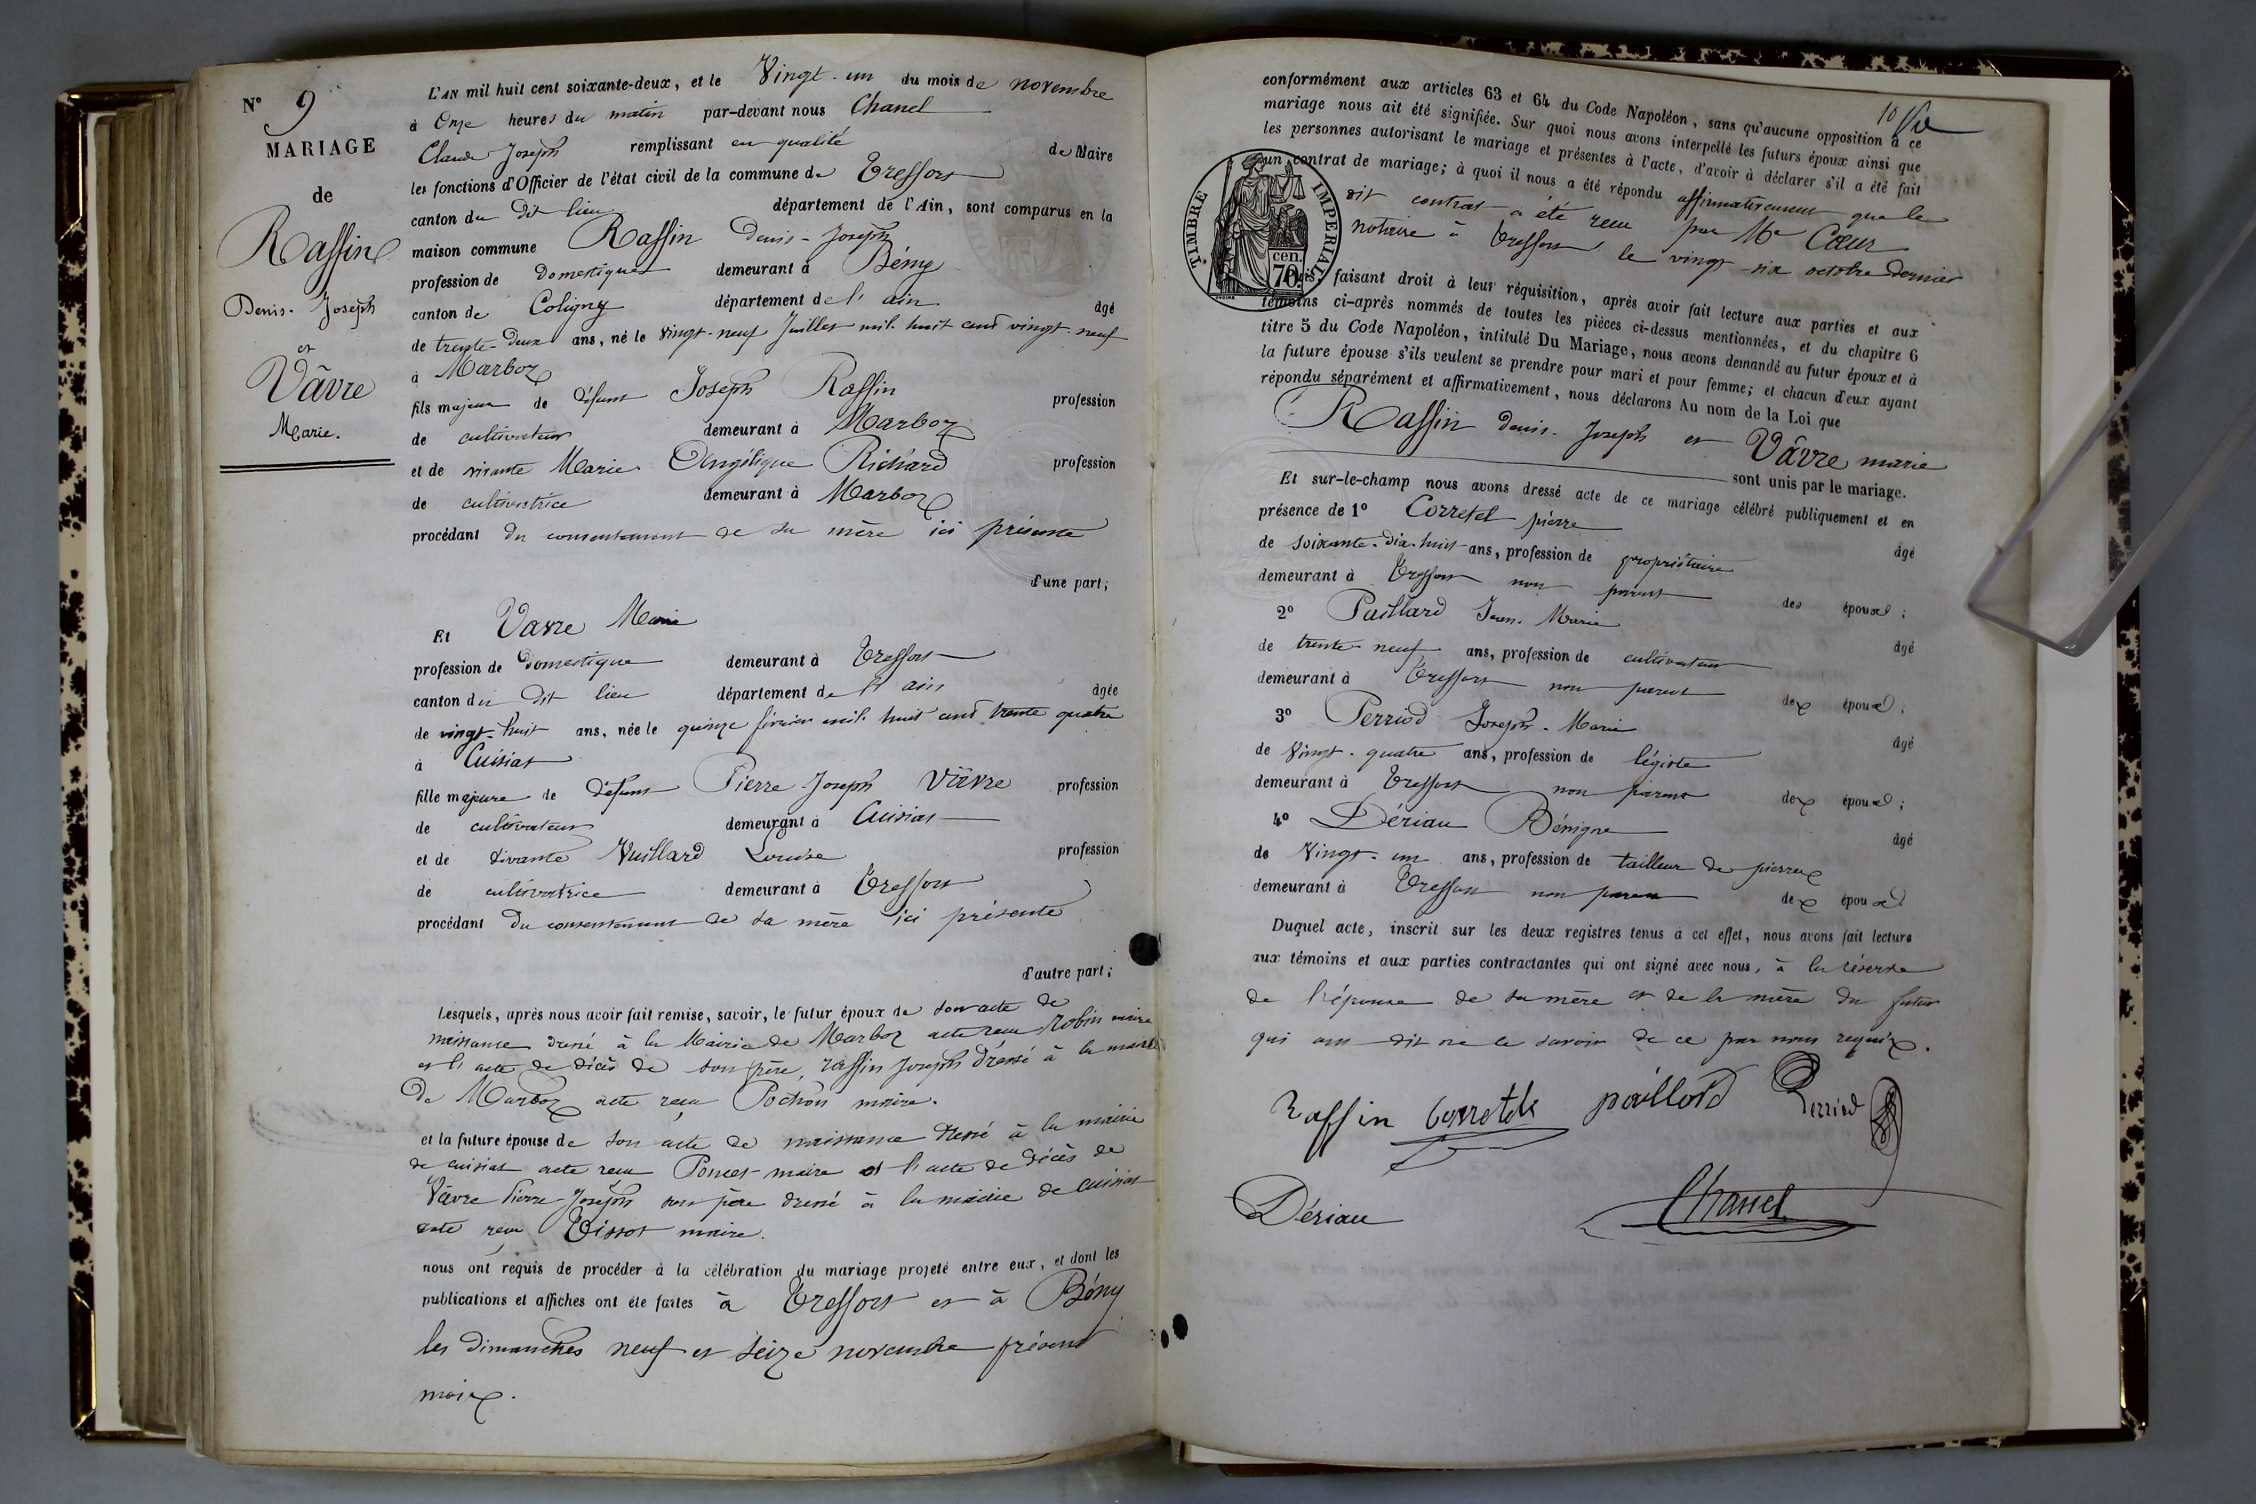 N° 9
MARIAGE
de
Raffin
Denis-Joseph
et
Vâvre
Marie.
L'AN mil huit cent soixante-deux, et le Vingt-un du mois de novembre
à Onze heures du matin par-devant nous Chanel
Claude Joseph remplissant en qualité de Maire
les fonctions d'Officier de l'état civil de la commune de Treffort
canton du dit lieu département de l'Ain, sont comparus en la
maison commune Raffin Denis-Joseph
profession de domestique demeurant à Bény
canton de Coligny département de l'ain âgé
de trente-deux ans, né le vingt-neuf Juillet mil huit cent vingt-neuf
à Marboz
fils majeur de défunt Joseph Raffin profession
de cultivateur demeurant à Marboz
et de vivante Marie Angélique Richard profession
de cultivatrice demeurant à Marboz
procédant du consentement de sa mère ici présente
d'une part;
Et Vavre Marie
profession de domestique demeurant à Treffort
canton du dit lieu département de l'ain âgée
de vingt-huit ans, née le quinze février mil huit cent trente quatre
à Cuisiat
fille majeure de défunt Pierre Joseph Vâvre profession
de cultivateur demeurant à Cuisiat
et de vivante Vuillard Louise profession
de cultivatrice demeurant à Treffort
procédant du consentement de sa mère ici présente
d'autre part;
Lesquels, après nous avoir fait remise, savoir, le futur époux de son acte de
naissance dressé à la Mairie de Marboz acte reçu Robin maire
et l'acte de décès de son père, raffin Joseph dressé à la mairie
de Marboz acte reçu Pochon maire.
et la future épouse de son acte de naissance dressé à la mairie
de cuisiat acte reçu Poncet maire et l'acte de décès de
Vâvre Pierre-Joseph son père dressé à la mairie de cuisiat
acte reçu Tissot maire.
nous ont requis de procéder à la célébration du mariage projeté entre eux, et dont les
publications et affiches ont été faites à Treffort et à Bény
les dimanches neuf et seize novembre présent
mois.
10
conformément aux articles 63 et 64 du Code Napoléon, sans qu'aucune opposition à ce
mariage nous ait été signifiée. Sur quoi nous avons interpellé les futurs époux ainsi que
les personnes autorisant le mariage et présentes à l'acte, d'avoir à déclarer s'il a été fait
un contrat de mariage; à quoi il nous a été répondu affirmativement que le
dit contrat a été reçu par Me Cœur
notaire à Treffort le vingt-six octobre dernier
TIMBRE IMPERIAL
70 cen.
Puis, faisant droit à leur réquisition, après avoir fait lecture aux parties et aux
témoins ci-après nommés de toutes les pièces ci-dessus mentionnées, et du chapitre 6
titre 5 du Code Napoléon, intitulé Du Mariage, nous avons demandé au futur époux et à
la future épouse s'ils veulent se prendre pour mari et pour femme; et chacun d'eux ayant
répondu séparément et affirmativement, nous déclarons Au nom de la Loi que
Raffin denis-Joseph et Vâvre marie
sont unis par le mariage.
Et sur-le-champ nous avons dressé acte de ce mariage célébré publiquement et en
présence de 1° Corretel pierre âgé
de soixante-dix-huit ans, profession de propriétaire
demeurant à Treffort non parent des époux;
2° Paillard Jean-Marie âgé
de trente-neuf ans, profession de cultivateur
demeurant à Treffort non parent des époux;
3° Perriod Joseph-Marie âgé
de Vingt-quatre ans, profession de légiste
demeurant à Treffort non parent des époux;
4° Dériau Bénigne âgé
de Vingt-un ans, profession de tailleur de pierres
demeurant à Treffort non parent des époux
Duquel acte, inscrit sur les deux registres tenus à cet effet, nous avons fait lecture
aux témoins et aux parties contractantes qui ont signé avec nous, à la réserve
de l'épouse de sa mère et de la mère du futur
qui ont dit ne le savoir de ce par nous requis.
Raffin Corretel paillard Perriod
Dériau Chanel